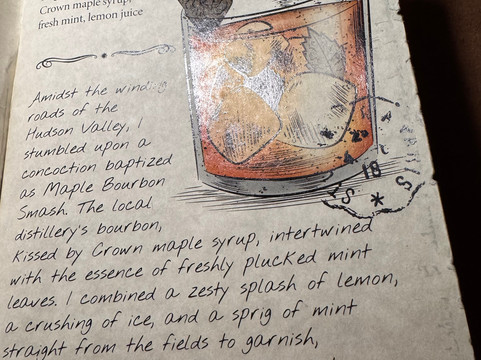 Crown maple syrup,
fresh mint, lemon juice
Amidst the winding
roads of the
Hudson Valley, I
stumbled upon a
concoction baptized
as Maple Bourbon
Smash. The local
distillery's bourbon,
kissed by Crown maple syrup, intertwined
with the essence of freshly plucked mint
leaves. I combined a zesty splash of lemon,
a crushing of ice, and a sprig of mint
straight from the fields to garnish,
18